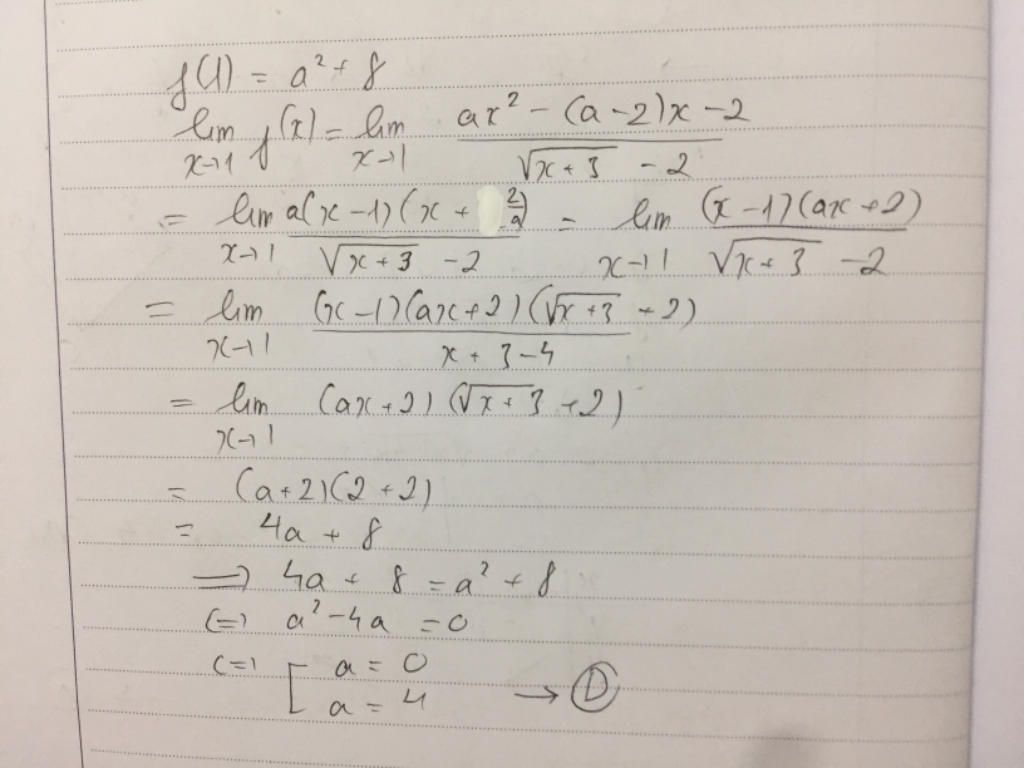 f(1) = a² + 8
lim x→1 f(x) = lim x→1 (ax² - (a-2)x - 2) / (√(x+3) - 2)
= lim x→1 a(x-1)(x + 2/a) / (√(x+3) - 2) = lim x→1 (x-1)(ax+2) / (√(x+3) - 2)
= lim x→1 (x-1)(ax+2)(√(x+3) + 2) / (x+3-4)
= lim x→1 (ax+2)(√(x+3) + 2)
= (a+2)(2+2)
= 4a + 8
⇒ 4a + 8 = a² + 8
⇔ a² - 4a = 0
⇔ [ a = 0
a = 4 → D